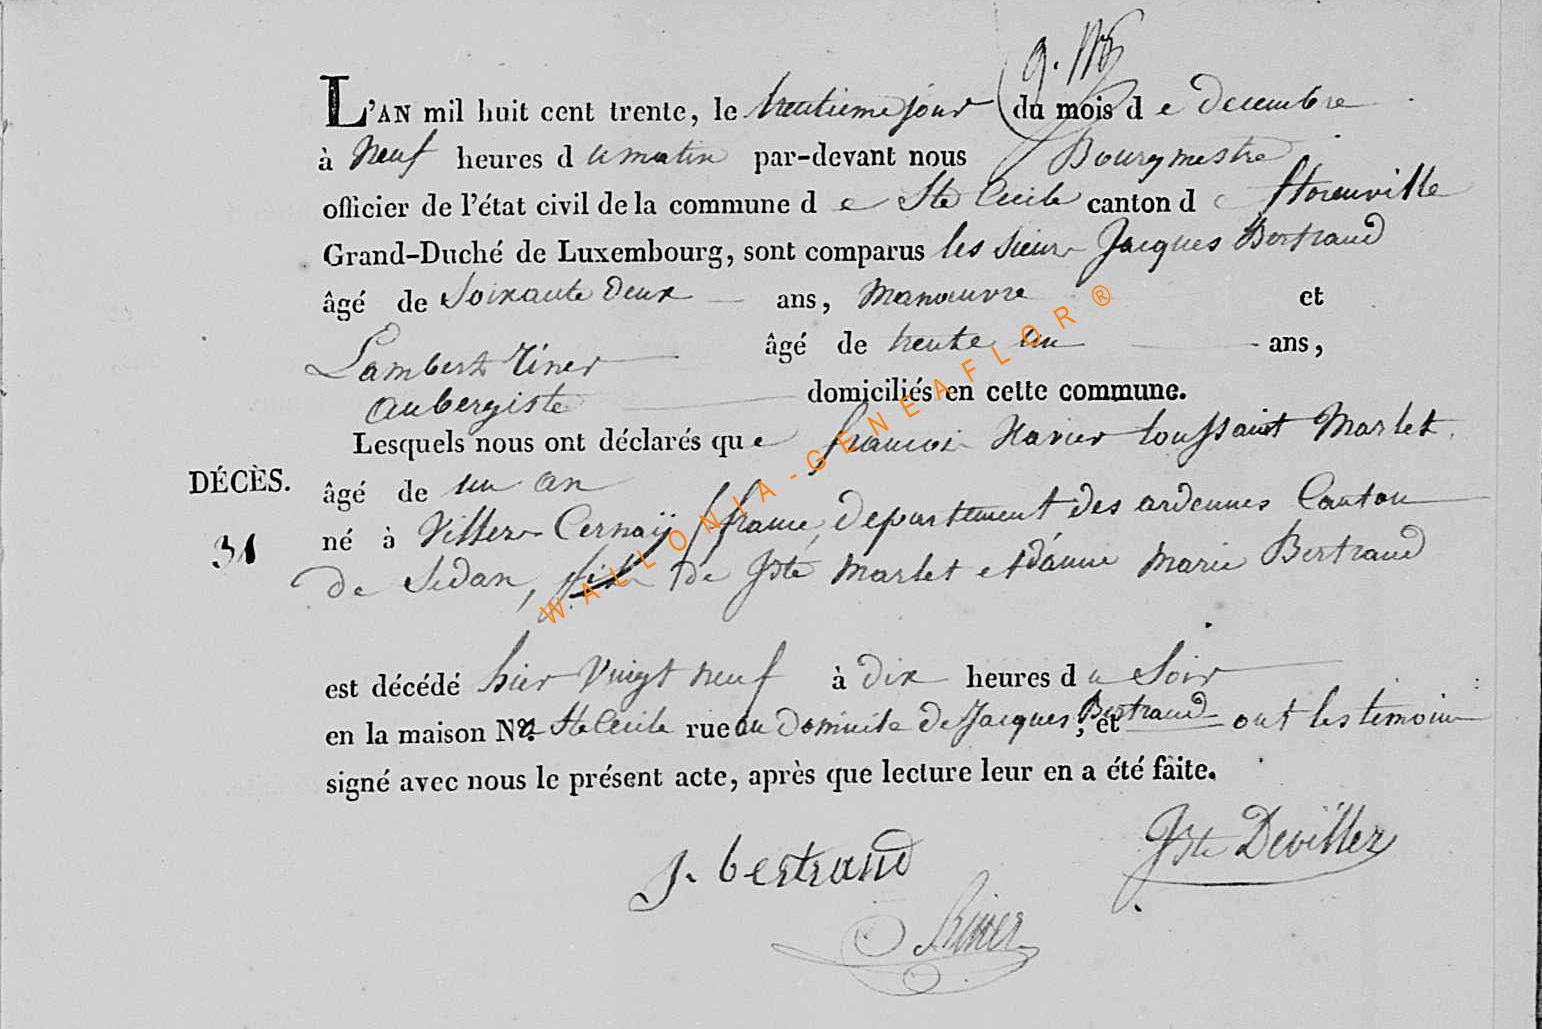 L'AN mil huit cent trente, le trentieme jour du mois d e decembre
à Neuf heures d u matin par-devant nous Bourgmestre
officier de l'état civil de la commune d e Ste Cecile canton d e florenville
Grand-Duché de Luxembourg, sont comparus les sieurs Jacques Bertrand
âgé de Soixante deux ans, Manœuvre et
Lambert âgé de trente un ans,
aubergiste domiciliés en cette commune.
Lesquels nous ont déclarés qu e francois Xavier toussaint Marlet
DÉCÈS. âgé de un an
31 né à Villers Cernaÿ france, departement des ardennes Canton
de Sedan, fils de Jste Marlet et d'anne Marie Bertrand
est décédé hier Vingt neuf à dix heures d u Soir
en la maison No. Ste Cecile rue au domicile de Jacques Bertrand, et ont les temoins
signé avec nous le présent acte, après que lecture leur en a été faite.
J. bertrand Jste Devillez
WALLONIA-GENEAFLOR®